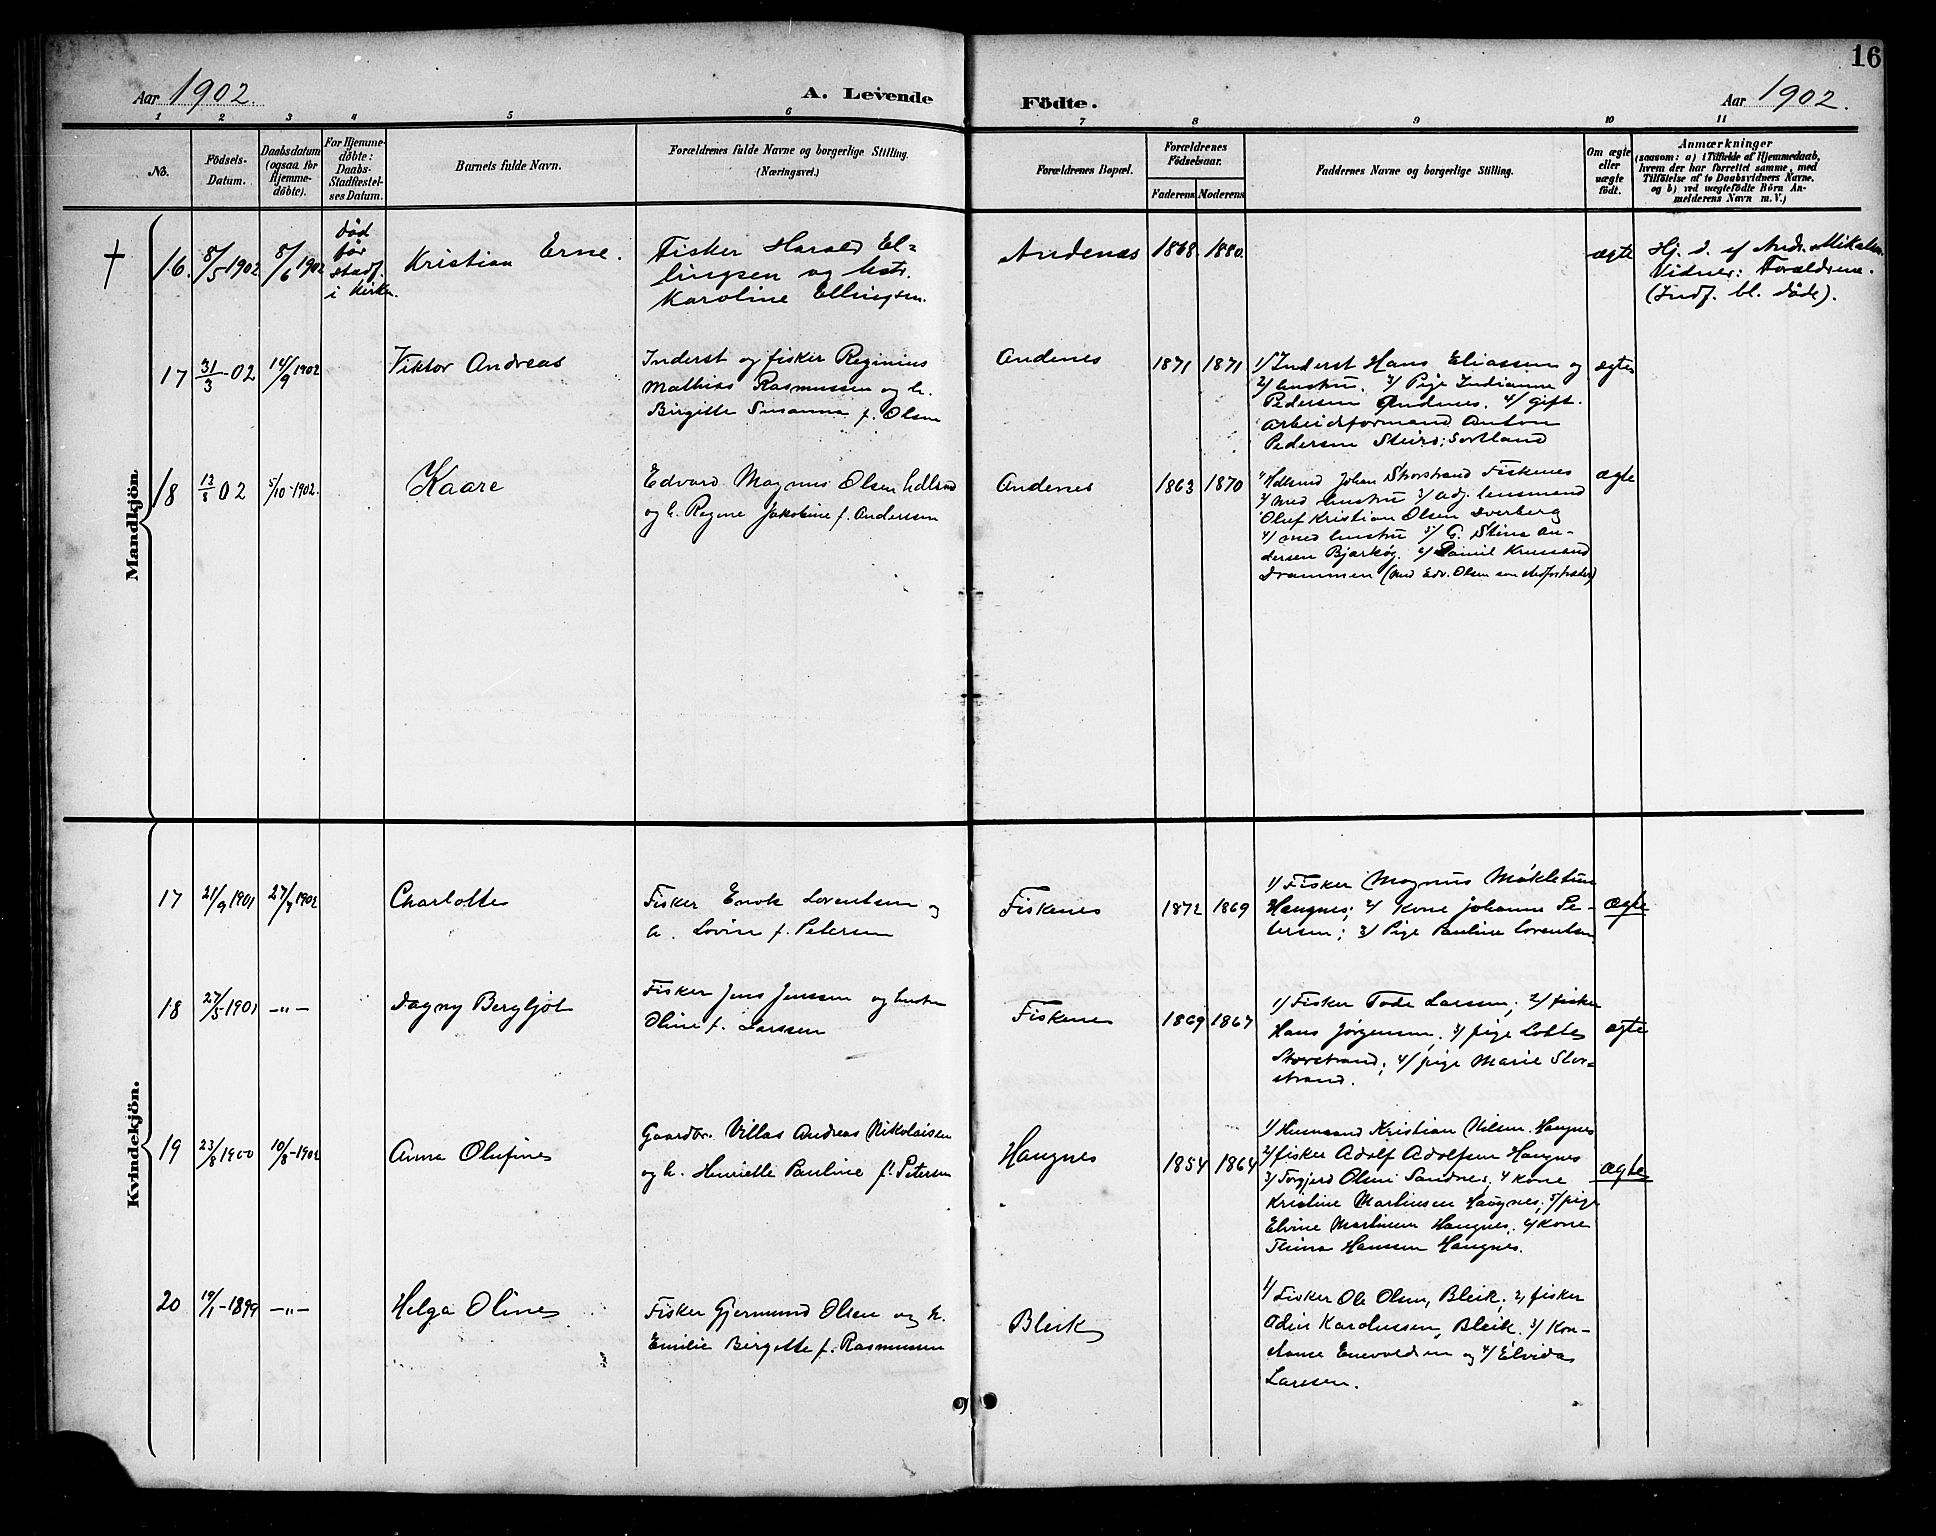 16
Aar 1902. A. Levende Födte. Aar 1902.
1 2 3 4 5 6 7 8 9 10 11
No.
Födsels-
Datum.
Daabsdatum
(ogsaa for
Hjemme-
döbte).
For Hjemme-
döbte:
Daabs-
Stadfæstel-
ses Datum.
Barnets fulde Navn.
Forældrenes fulde Navne og borgerlige Stilling.
(Næringsvei.)
Forældrenes Bopæl.
Forældrenes
Födselsaar.
Faderens Moderens
Faddernes Navne og borgerlige Stilling.
Om ægte
eller
uægte
födt.
Anmærkninger
(saasom: a) i Tilfælde af Hjemmedaab,
hvem der har forrettet samme, med
Tilföielse af to Daabsvidners Navne.
og b) ved uægtefödte Börn An-
melderens Navn m. V.)
Mandkjön
16. 8/5 1902 8/6 1902
död
för
stadf.
i Kirken.
Kristian Erne.
Fisker Harald El=
lingsen og hstr.
Karoline Ellingsen.
Andenæs 1868 1880.
ægte
Hj. d. af Andr. Mikalsen
Vidner: Forældrene.
(Indf. bl. döde).
17 31/3-02 14/9 1902
Viktor Andreas
Inderst og fisker Reginius
Mathias Rasmussen og h.
Birgitte Susanna f. Olsen
Andenes
1871 1871
1/ Inderst Hans Eliassen og
2/ hustru. 3/ Pige Indianne
Pedersen Andenes. 4/ gift.
Arbeidsformand Anton
Pedersen Steiro, Sortland
ægte
18 13/8 02 5/10-1902.
Kaare
Edvard Magnus Olsen
og h. Regine Jakobine f. Andersen
Andenes
1863 1870
1/ Johan Storstrand Fiskenes
2/ med hustru 3/ adj. lensmand
Oluf Kristian Olsen Dverberg
4/ med hustru 5/ G. Stina An-
dersen Bjarköy. 6/ Daniel
Drammen (med Edv. Olsen som
ægte
Kvindekjön.
17 21/9 1901 27/7 1902
Charlotte
Fisker Enok Lorentsen og
h. Lovise f. Petersen
Fiskenes
1872 1869
1/ Fisker Magnus
Haugnes; 2/ Kone Johanne Pe-
tersen; 3/ Pige Pauline Lorentsen
ægte
18 27/5 1901 -"-
Dagny Bergljot
Fisker Jens Jenssen og hustru
Oline f. Larssen
Fiskenes
1869 1867
1/ Fisker Tode Larssen; 2/ fisker
Hans Jörgensen, 3/ pige Lotte
Storstrand; 4/ pige Marie Stor-
strand.
ægte
19 23/8 1900 10/8-1902
Anna Olufine
Gaardbr. Villas Andreas Nikolaisen
og h. Henriette Pauline f. Petersen
Haugnes
1854 1864
1/ Husmand Kristian Nilsen. Haugnes
2/ fisker Adolf Adolfsen Haugnes
3/ Torgjerd Olsen Sandnes, 4 Kone
Kristine Martinsen Haugnes; 5/ pige
Elvine Martinsen Haugnes, 6/ Kone
Hanssen Haugnes.
ægte
20 19/1-1899 -"-
Helga Oline
Fisker Gjermund Olsen og h.
Emilie Birgitte f. Rasmussen
Bleik
1/ Fisker Ole Olsen, Bleik; 2/ fisker
Odin Karoliussen, Bleik. 3/ Kon-
Enevoldsen og 4/ Elvida
Larssen.